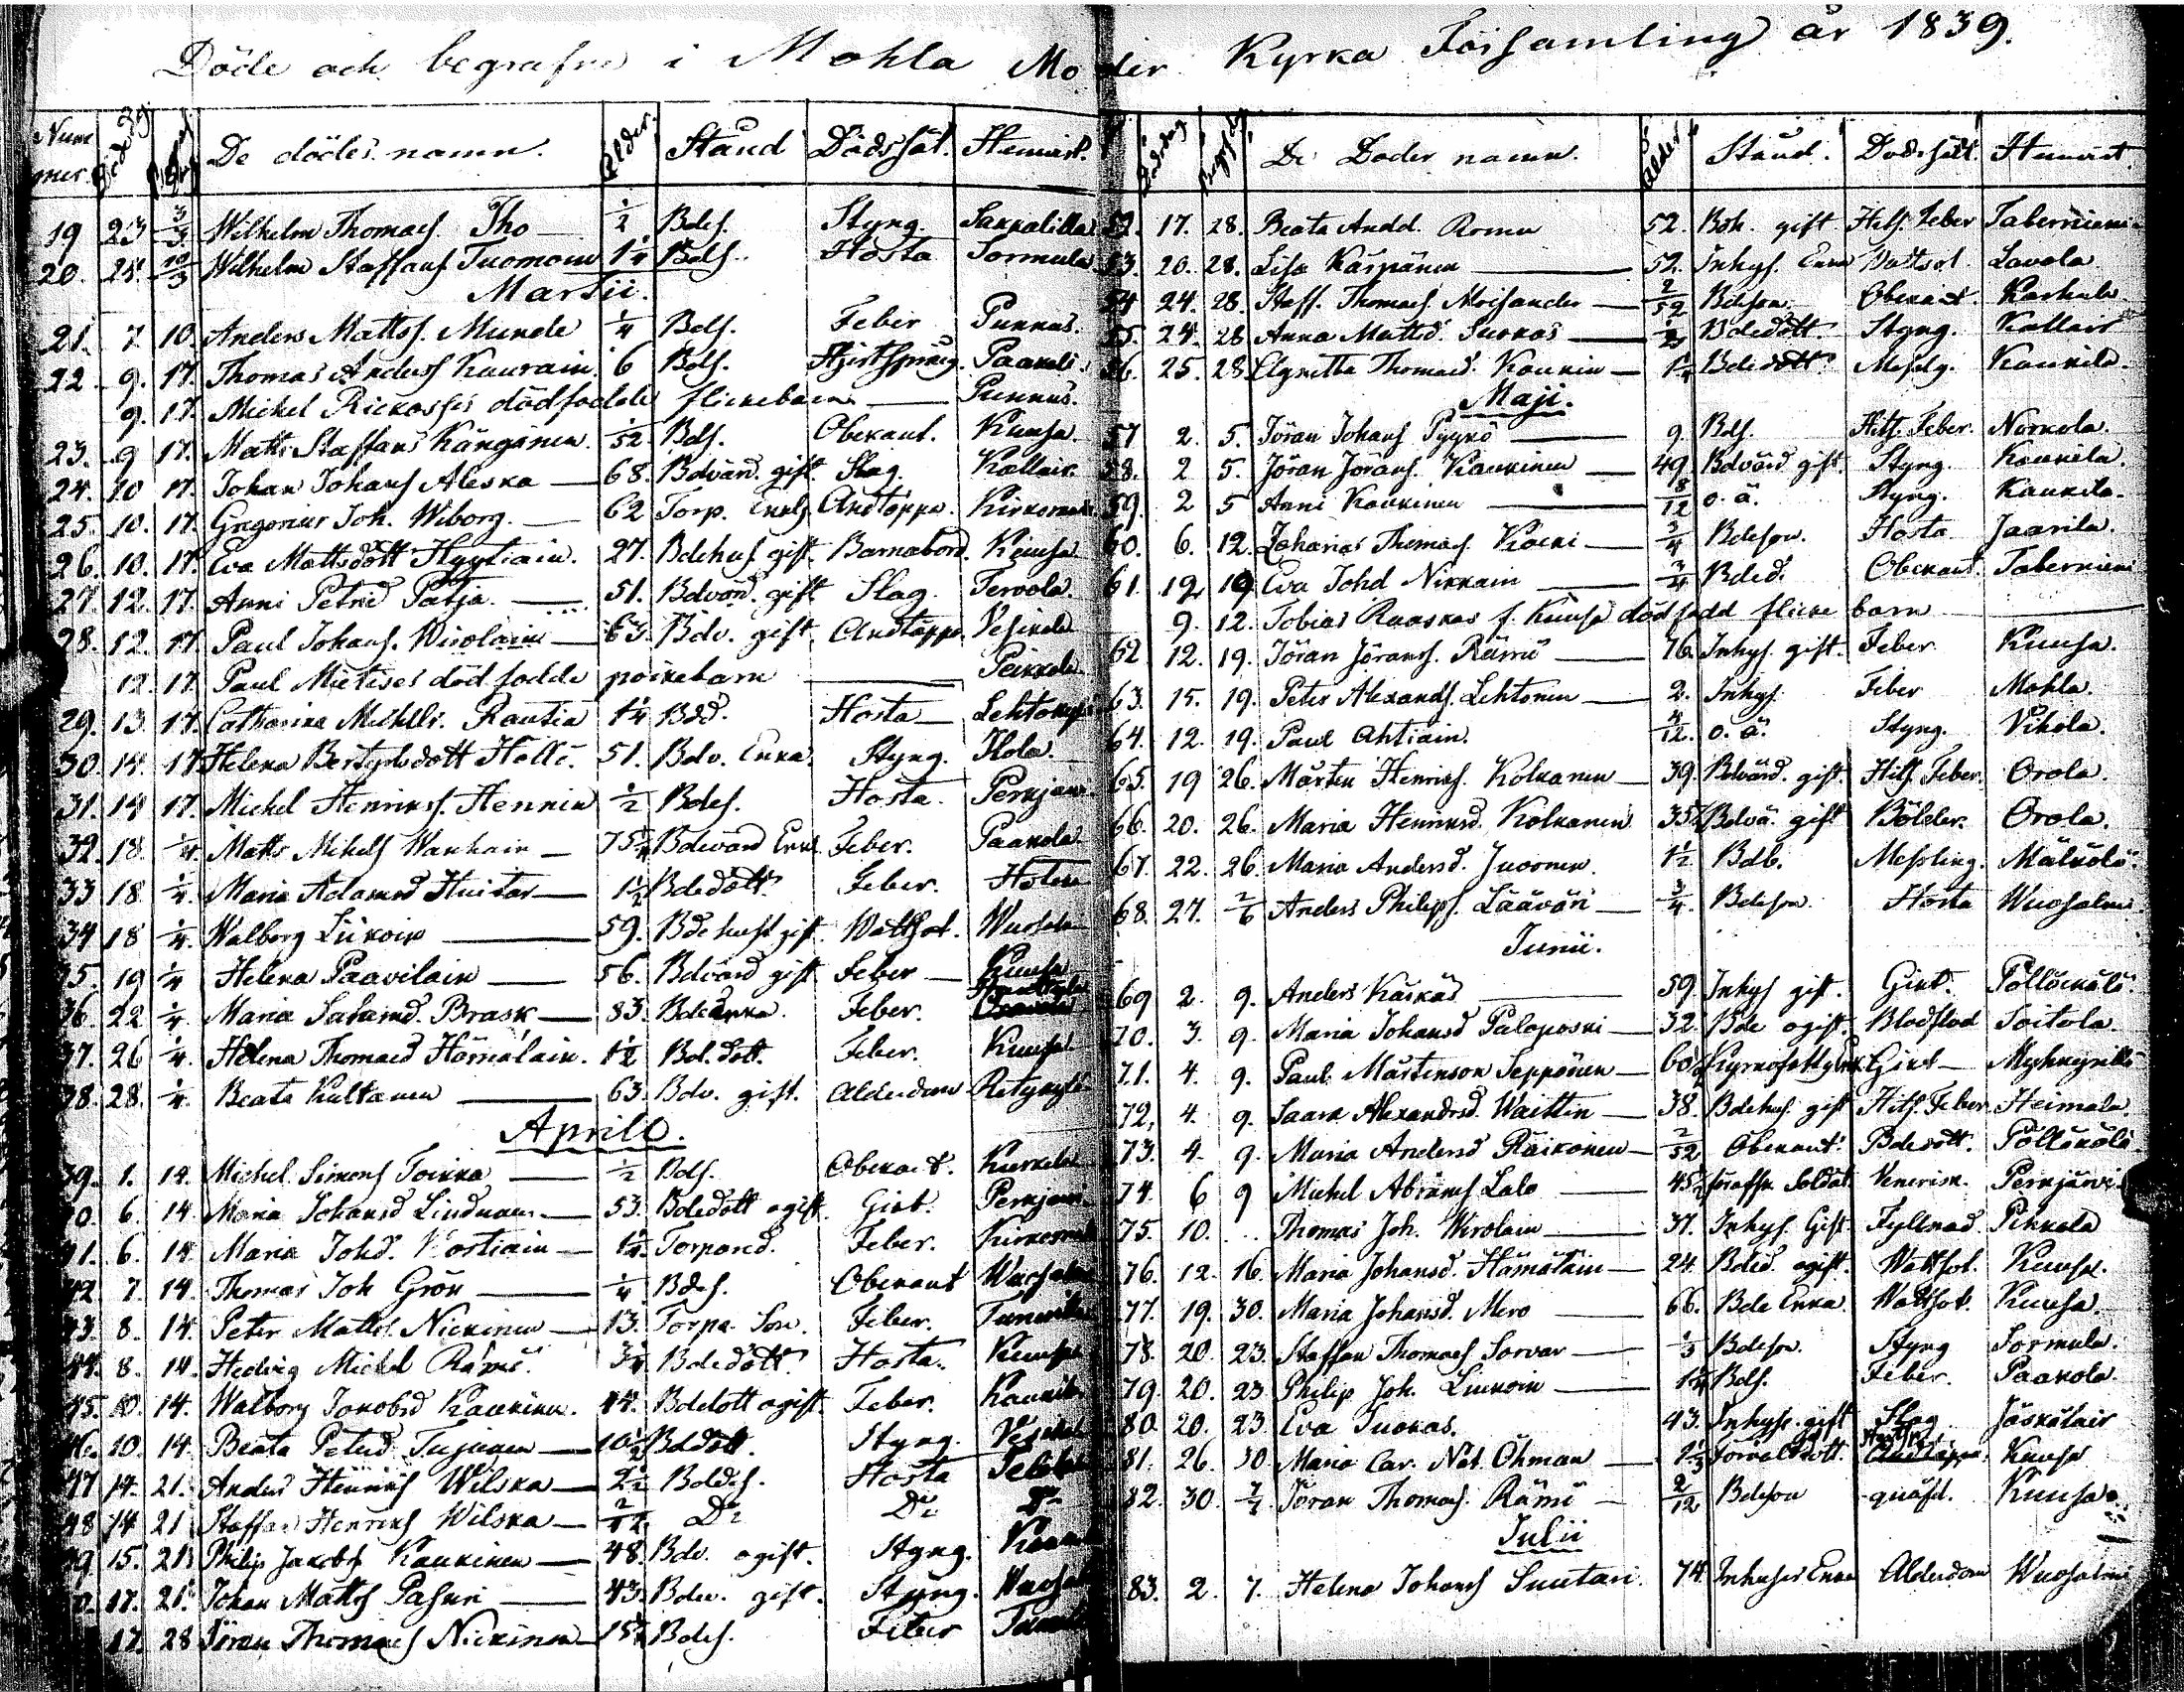 Döde och begrafne i Mohla Moder Kyrka Församling år 1839.
Num mer. De dödes namn. Ålder. Stånd Dödssät. Hemvist.
19 23 3/3 Wilhelm Thomaes. Tho 1/2 Bdes. Styng. Sakkalilla
20. 24. 10/3 Wilhelm Staffans Tuomoin 1 1/4 Bdes. Hosta Sormula
Martii.
21. 7 10. Anders Mattss. Munde 1/4 Bdes. Feber Punnus.
22. 9. 17. Thomas Anders Kaurain. 6 Bdes. Hjertspräng. Paakoli
9. 17. Mickel Rickosses dödfödde flickebarn Punnus.
23. 9 17. Matts Staffans Kängänen. 1/52 Bds. Obekant. Kuusa
24. 10 17. Johan Johans Aleska 68. Bdvärd. gift. Slag. Kallais.
25. 10. 17. Gregorius Joh. Wiborg. 62 Torp. Enkl. Andtäppa. Kirkoruk
26. 10. 17. Eva Mattsdott Hyytiäin. 27. Bdehus. gift. Barnabörd. Kuusa
27. 12. 17. Anni Petrid Patja. 51. Bdvärd. gift Slag. Tervola.
28. 12. 17. Paul Johans. Wirolain 63. Bdv. gift. Andtäppa. Vesikela
12. 17. Paul Mieteses död födde poikebarn Peikkola
29. 13. 17. Catharina Michells. Rautia 1 1/4 Bdd. Hosta Lehtokylä
30. 14. 17. Helena Bertyls dott Hölli. 51. Bdv. Enka. Styng. Ilola.
31. 14 17. Michel Henrikss. Hennin 1/2 Bdes. Hosta. Perkjärvi
32. 18. 1/4. Matts Mikels Wanhain 75 1/4 Bdevärd Enkl. Feber. Paakola.
33 18. 1/4. Maria Adamsd Huistar 1 1/2 Bdedott. Feber. Hoten
34 18 1/4. Walborg Liikoin 59. Bdehust gift. Wattsot. Wuosalmi
35. 19 1/4 Helena Paavilain 56. Bdvärd gift Feber Kuusa
36. 22 1/4. Maria Salamd. Brask 83. Bdeenka. Feber.
37. 26 1/4. Helena Thomaed Hämäläin. 1 1/2 Bd. dott. Feber. Kuusa
38. 28. 1/4. Beata Kultanen 63. Bdv. gift. Alderdom Retykylä
Aprill.
39. 1. 14. Michel Simons Toikka 1/2 Bds. Obekant. Kurkela
40. 6. 14 Maria Johansd Lindman. 53. Bdedott ogift. Gikt. Perkjärvi
41. 6. 14 Maria Johd. Vortiain 1 1/4 Torpand. Feber.
42 7. 14. Thomas Joh Grön 1/4 Bdes. Obekant Wuosalmi
43. 8. 14. Peter Mattss. Nickinen 13. Torpa Son. Feber.
44. 8. 14. Hedvig Mickel Rämö. 3 1/4 Bdedott. Hosta. Kuusa
45. 10. 14. Walborg Jakobsd Kaukinen. 14. Bdedott ogift. Feber. Kaukila
46. 10. 14 Beata Petrid Tujanen 10 1/2 Bddott. Styng. Vesikel
47 14. 21. Anders Henriks Wilska 2 1/2 Boldes. Hosta
48 14 21 Staffan Henriks Wilska 2/12. Do Do Do
49 15. 21. Philip Jakobs Kaukinen 48. Bdv. ogift. Styng.
50. 17. 21. Johan Matts Pasuri 43. Bdv. gift. Styng. Wuosal
17. 28 Jöran Thomaes Nickinen 15 1/4 Bdes. Feber
Dödsdag De Döder namn. Ålder Stånd. Dödssätt. Hemvist.
52. 17. 28. Beata Andd. Romu 52. Boh. gift. Hets. Feber Taberniemi
53. 20. 28. Lisa Kärpänen 52. Inhys. Enka Wattsot. Lavola
54 24. 28. Staff. Thomaes. Moisander 2/52 Bdeson. Obekant. Karhula
55. 24. 28 Anna Mattsd. Suokas 1/2 Bdedott. Styng. Kallais
56. 25. 28. Agnetha Thomaed. Kaukin 1 1/4 Bdedott. Messlg. Kaukila.
Maji.
57 2. 5. Jöran Johans Pyykö 9. Bds. Hets. Feber. Norkola.
58. 2 5. Jöran Jörans. Kaukinen 49. Bdvärd gift. Styng. Kaukila.
59. 2 5 Anni Kaukinen 8/12 o. ä. Styng. Kaukila.
60. 6. 12. Zaharias Thomaes. Kaeki 3/4 Bdeson. Hosta Jaarila.
61. 12 19 Eva Johd Nikkain 3/4 Bded. Obekant. Taberniemi
9. 12. Tobias Raaskas f. Kuusa död född flicke barn
62 12. 19. Jöran Jörans. Rämö 76. Inhys. gift. Feber Kuusa.
63. 15. 19. Peter Alexands. Lehtonen 2. Inhys. Feber Mohla.
64. 12. 19. Paul Ahtiain. 4/12. o. ä. Styng. Vikola.
65. 19 26. Mårten Henriks. Kolkanen 39. Bdvärd. gift. Hits. Feber. Orola.
66. 20. 26. Maria Henriksd. Kolkanen 35 1/2 Bdvä. gift Bölder. Orola.
67. 22. 26 Maria Andersd. Juvonen. 1 1/2 Bdb. Messling. Mälkölä.
68. 27. 2/6 Anders Philips. Läävän 3/4. Bdeson Hosta Wuosalmi
Junii.
69 2. 9. Anders Käskäs 59. Inhys gift. Gikt. Pöllökälä.
70. 3. 9. Maria Johansd Paloposki 32. Bde ogift. Blodflod Soitola.
71. 4. 9. Paul Mårtenson Seppönen 60 Gikt Myhkyrilä
72. 4. 9. Saara Alexandrsd. Waittin 38. Bdehus. gift Hits. Feber Heimala.
73. 4. 9. Maria Andersd Räikönen 2/52 Obekant. Bdedott. Pöllökälä.
74. 6 9 Michel Abrams Lalo 45 1/2 Soldat Venerisk. Perkjärvi.
75. 10. Thomas Joh. Wirolain 37. Inhys. Gift. Fyllnad Pikkola
76. 12. 16. Maria Johansd. Hämäläin 24. Bded. ogift. Wattsot. Kuusa.
77. 19. 30. Maria Johansd. Mero 66. Bde Enka. Wattsot. Kuusa.
78. 20. 23. Staffan Thomaes Sorvar 1/3 Bdeson. Styng Sormula.
79. 20. 23 Philip Joh. Liukoin 1 1/4 Bds. Feber. Paakola.
80. 20. 23 Eva Tuokas. 43. Inhyse. gift Slag Jäskälair
81. 26. 30 Maria Car. Nat. Öhman 1 1/3 Kuusa
82. 30. 7/7 Jöran Thomaes. Rämö 2/12 Bdeson qväfd. Kuusa.
Julii
83. 2. 7. Helena Johans Suutari. 74. Inhyses Enka Alderdom Wuosalmi